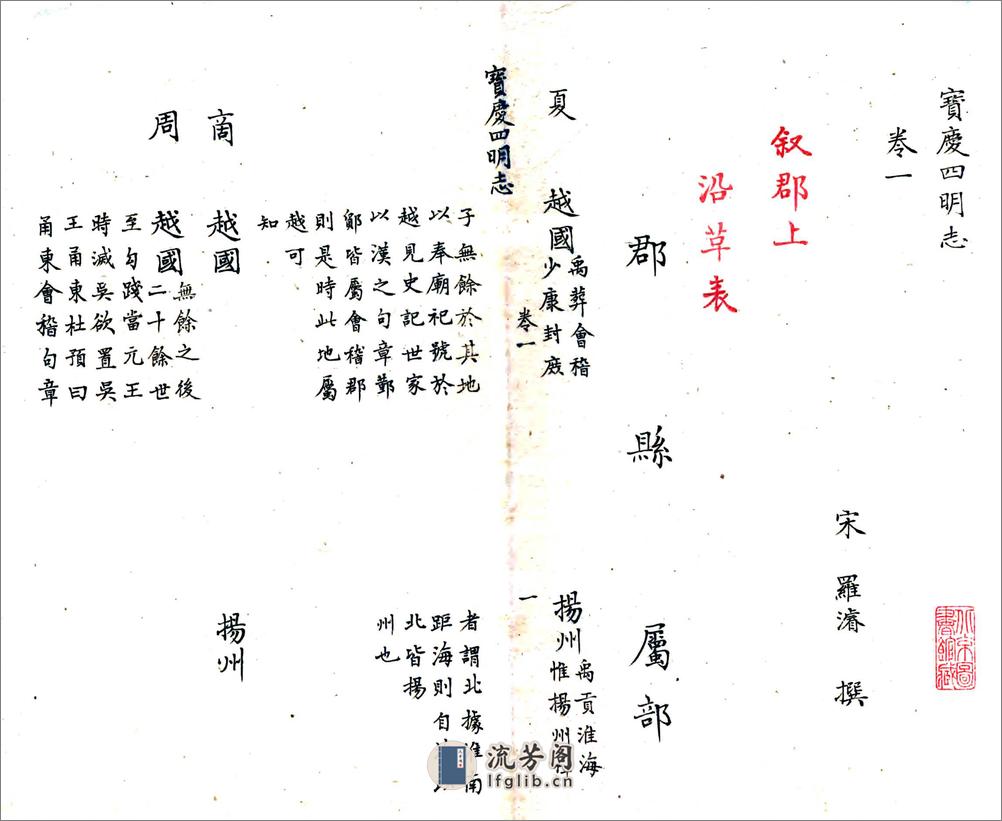 寶慶四明志
卷一
宋 羅濬 撰
北京圖書館藏
叙郡上
沿草表
郡 縣 屬部
夏
越國
禹葬會稽
少康封庶
揚州
禹貢淮海
惟揚州
寶慶四明志 卷一 一
子無餘於其地
以奉廟祀號於
越見史記世家
以漢之句章鄞
鄮皆屬會稽郡
則是時此地屬
越可
知
者謂北據淮南
距海則自
北皆揚
州也
商 越國 揚州
周 越國
無餘之後
二十餘世
至勾踐當元王
時滅吳欲置吳
王甬東杜預曰
甬東會稽句章
流芳阁
lfglib.cn